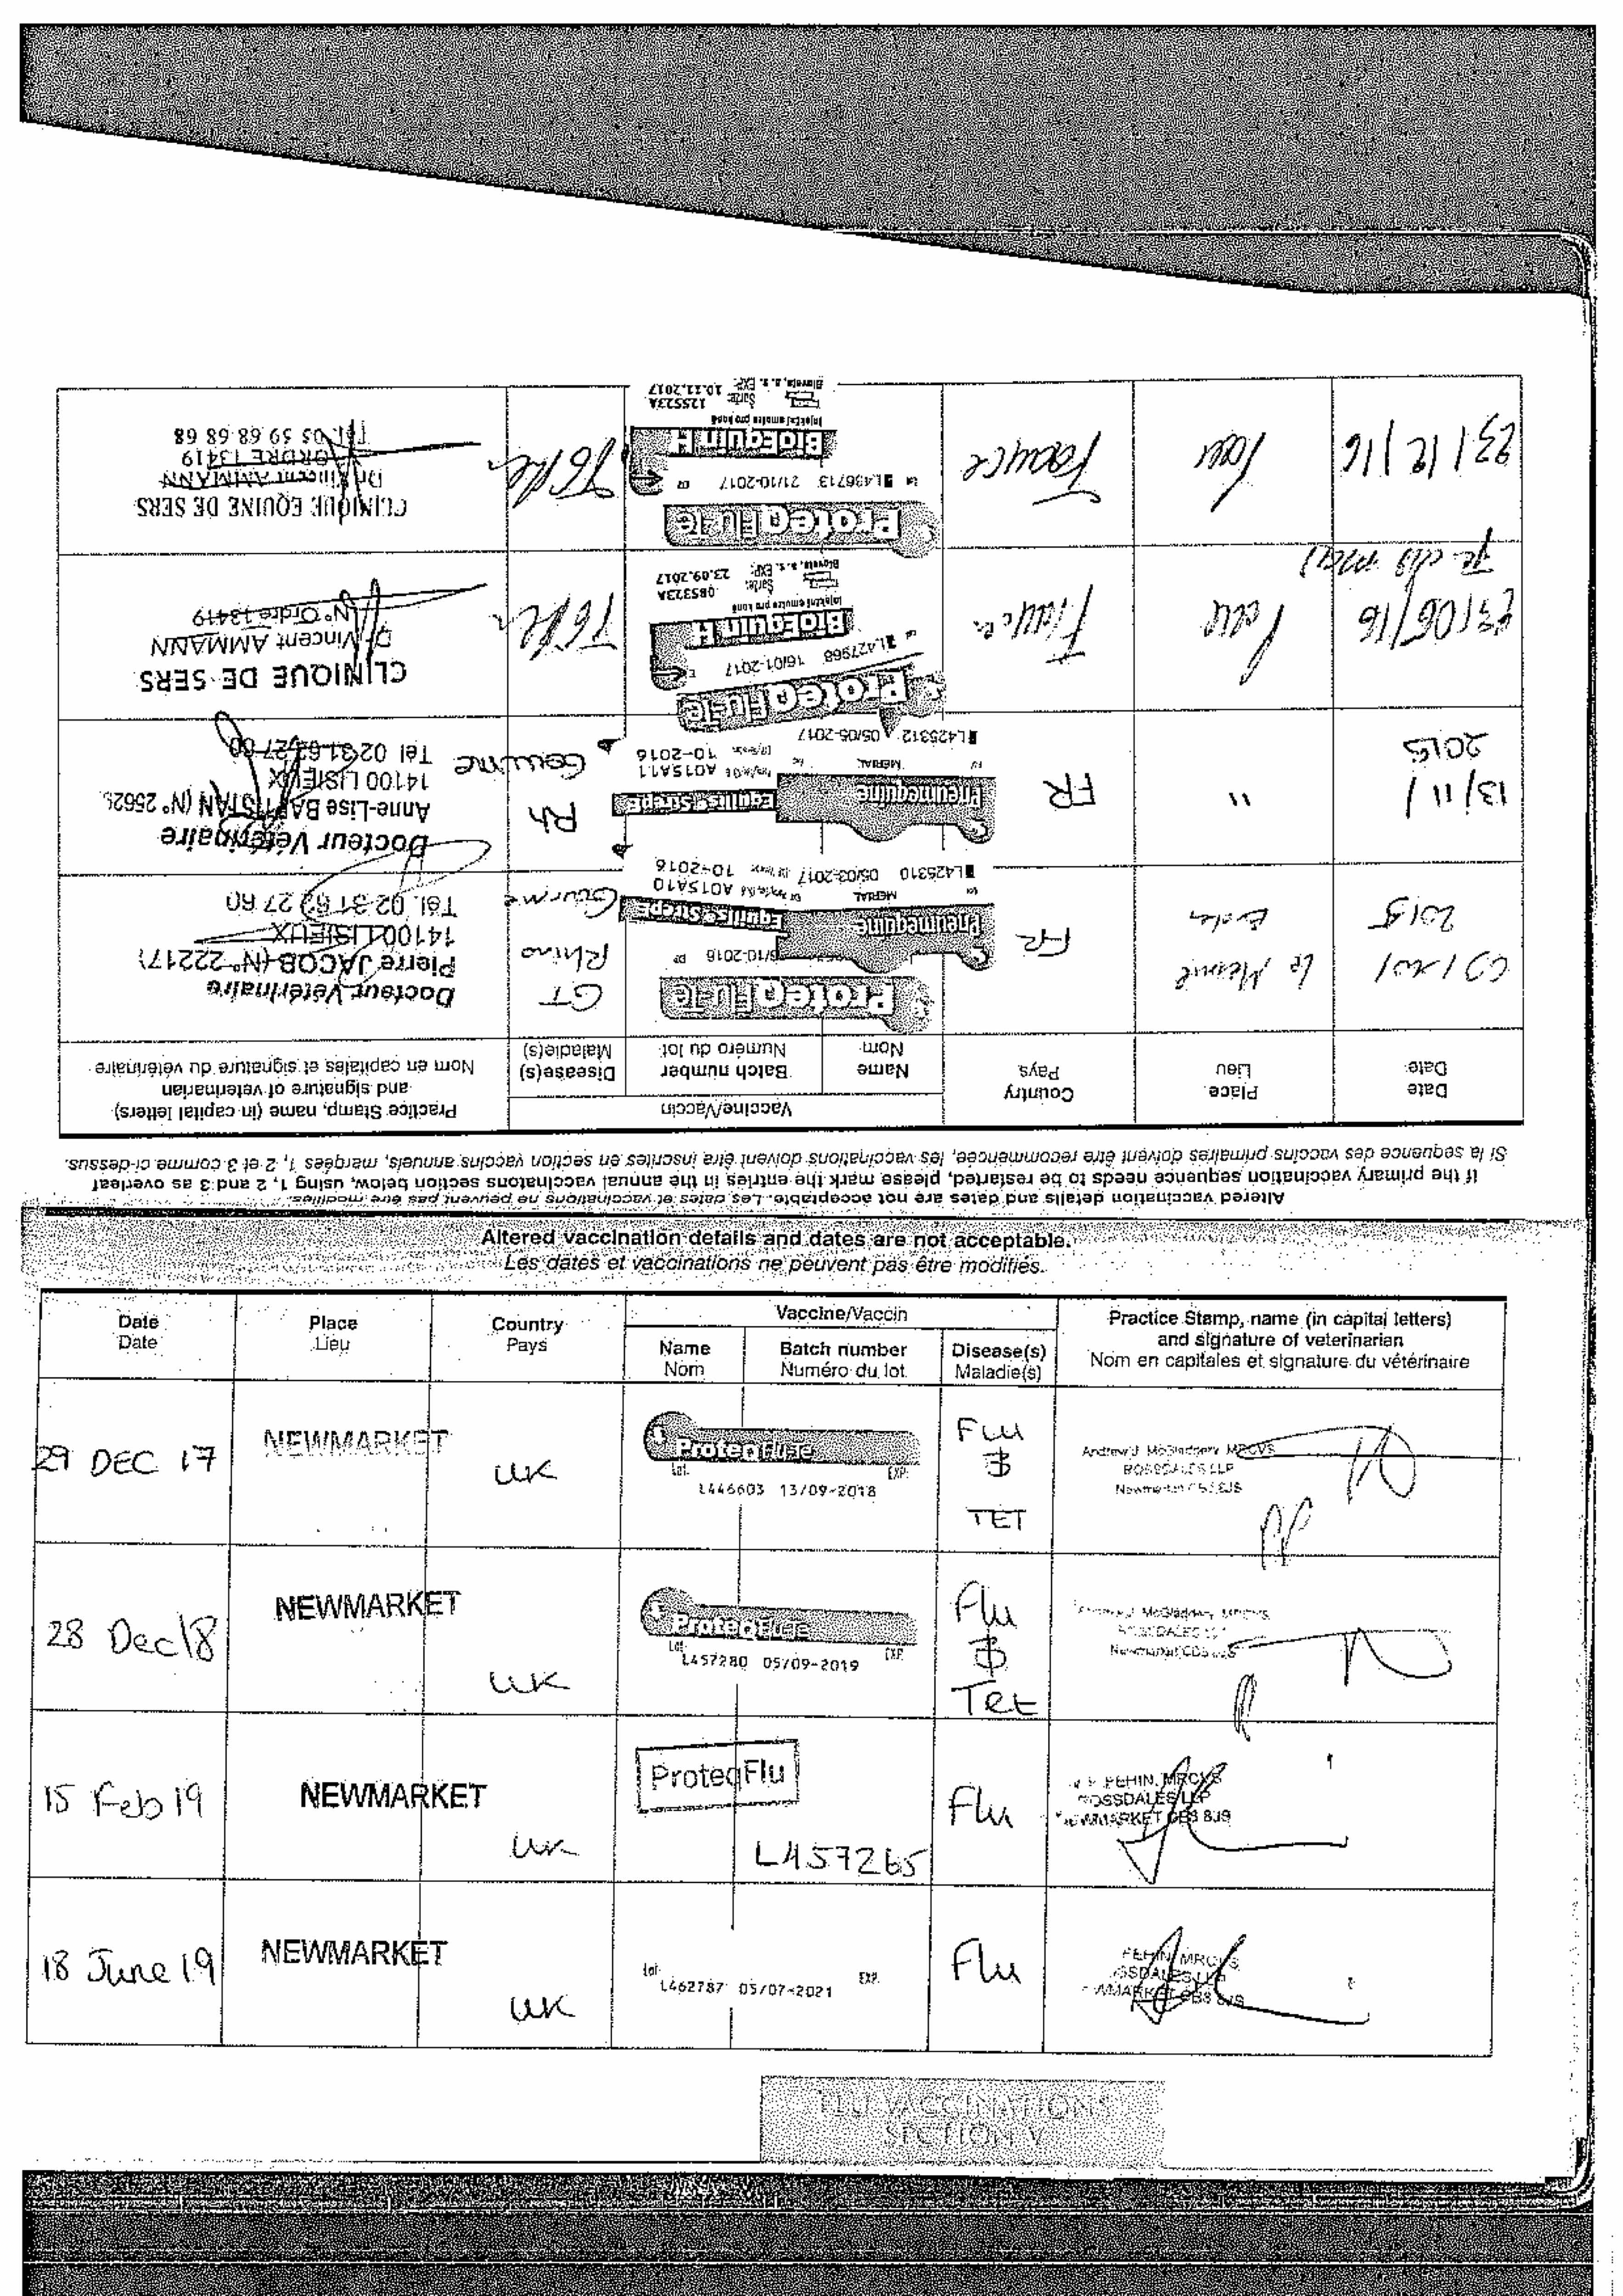 Altered vaccination details and dates are not acceptable. Les dates et vaccinations ne peuvent pas être modifiées.
If the primary vaccination sequence needs to be restarted, please mark the entries in the annual vaccinations section below, using 1, 2 and 3 as overleaf
Si la séquence des vaccins primaires doivent être recommencée, les vaccinations doivent être inscrites en section vaccins annuels, marquées 1, 2 et 3 comme ci-dessus.
Date
Date
Place
Lieu
Country
Pays
Vaccine/Vaccin
Name
Nom
Batch number
Numéro du lot
Disease(s)
Maladie(s)
Practice Stamp, name (in capital letters)
and signature of veterinarian
Nom en capitales et signature du vétérinaire
2015
Le Mesnil
FR
ProteqFlu-Te
10-2016
Pneumequine
MERIAL
L425310 05/03-2017
Equilis StrepE
A015A10
10-2016
GT
Rhino
Gourme
Docteur Vétérinaire
Pierre JACOB (N° 22217)
14100 LISIEUX
Tél. 02 31 62 27 60
13/11/
2015
"
FR
Pneumequine
MERIAL
L425312 05/05-2017
Equilis StrepE
A015A11
10-2016
Rh
Gourme
Docteur Vétérinaire
Anne-Lise BAPTISTAN (N° 25625)
14100 LISIEUX
Tél 02 31 62 27 60
23/05/16
Pau
France
ProteqFlu-Te
L427968 16/01-2017
BioEquin H
injekční emulze pro koně
Šarže: 085323A
Bioveta, a. s. EXP: 23.09.2017
CLINIQUE DE SERS
Dr Vincent AMMANN
N° Ordre 13419
23/12/16
Pau
France
ProteqFlu-Te
L436713 21/10-2017
BioEquin H
injekční emulze pro koně
Šarže: 125523A
Bioveta, a. s. EXP: 10.11.2017
CLINIQUE EQUINE DE SERS
Dr Vincent AMMANN
ORDRE 13419
Tél. 05 59 68 68 68
Altered vaccination details and dates are not acceptable.
Les dates et vaccinations ne peuvent pas être modifiés.
Date
Date
Place
Lieu
Country
Pays
Vaccine/Vaccin
Name
Nom
Batch number
Numéro du lot
Disease(s)
Maladie(s)
Practice Stamp, name (in capital letters)
and signature of veterinarian
Nom en capitales et signature du vétérinaire
29 DEC 17
NEWMARKET
UK
ProteqFlu-Te
Lot: EXP:
L446603 13/09-2018
Flu
&
TET
Andrew J. McGladdery MRCVS
ROSSDALES LLP
Newmarket CB8 8JS
PP
28 Dec 18
NEWMARKET
UK
ProteqFlu-Te
Lot: EXP:
L457280 05/09-2019
Flu
&
Tet
Andrew J. McGladdery MRCVS
ROSSDALES LLP
Newmarket CB8 8JS
15 Feb 19
NEWMARKET
UK
ProteqFlu
L457265
Flu
FEHIN, MRCVS
ROSSDALES LLP
NEWMARKET CB8 8JS
18 June 19
NEWMARKET
UK
Lot: EXP.
L462787 05/07-2021
Flu
FEHIN, MRCVS
ROSSDALES LLP
NEWMARKET CB8 8JS
FLU VACCINATIONS
SECTION V